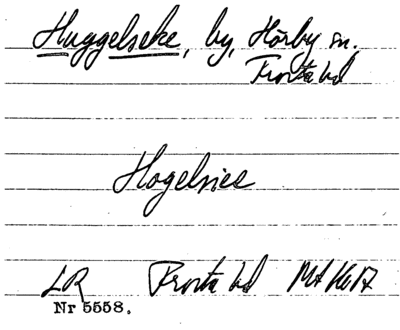 Huggelseke, by, Hörby sn.
Frosta hd
Hogelsies
LR Frosta hd
Nr 5558.